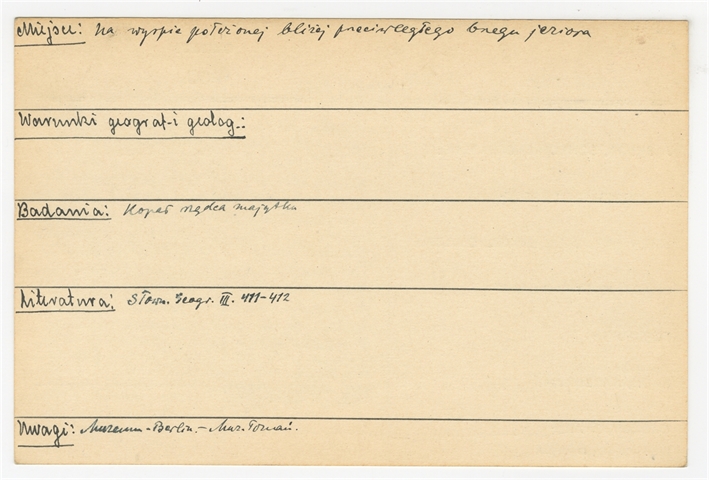 Miejsce: Na wyspie położonej bliżej przeciwległego brzegu jeziora
Warunki geograf-i geolog.:
Badania: Kopał rządca majątku
Literatura: Słown. Geogr. III. 411-412
Uwagi: Muzeum-Berlin.- Muz. Poznań.